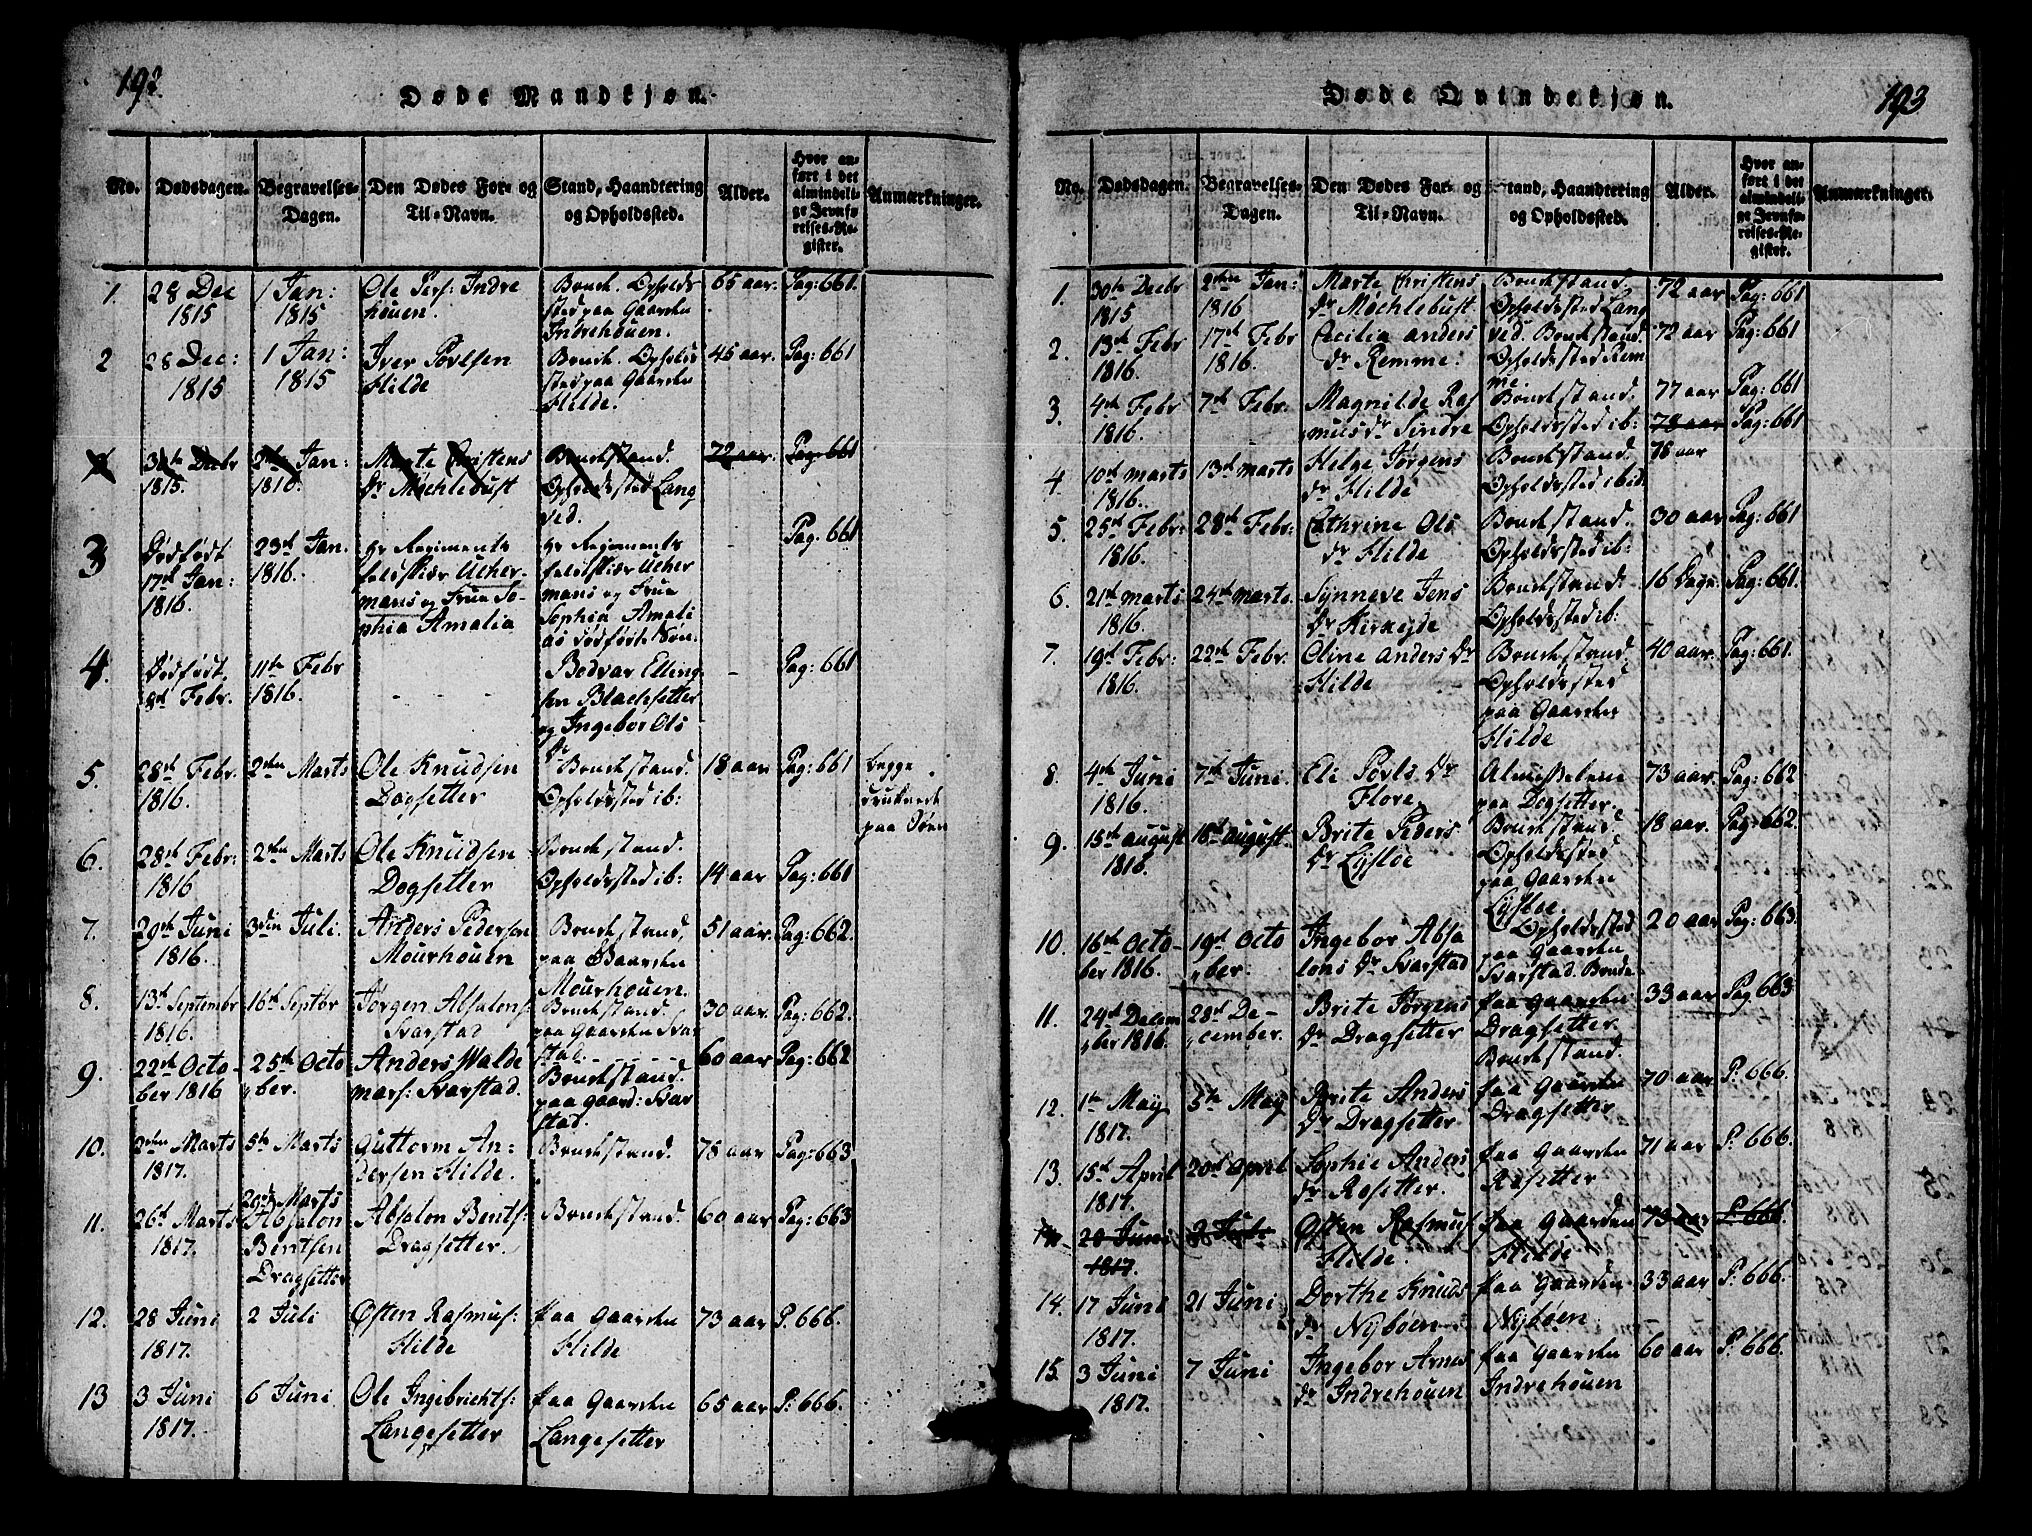 192.
Døde Mandkjøn.
No.
Dødsdagen.
Begravelses-
Dagen.
Den Dødes For- og
Til-Navn.
Stand, Haandtering
og Opholdssted.
Alder.
Hvor an-
ført i det
almindeli-
ge Jevnfø-
relses-Re-
gister.
Anmærkninger.
1.
28 Dec
1815
1 Jan:
1815
Ole Pers: Indre
houen.
Bonde. Opholds
sted paa Gaarden
Indrehouen.
65 aar.
Pag: 661.
2
28 Dec:
1815
1 Jan:
1815
Iver Povelsen
Hilde
Bonde. Opholds
sted paa Gaarden
Hilde.
45 aar.
Pag: 661
30te Decbr
1815.
2den Jan:
1816.
Marte Christens
Dr Mochlebust
Bondestand.
Opholdssted Lang
ved.
72 aar.
Pag: 661
3
Dødfødt
17de Jan:
1816.
23de Jan.
1816.
Hr Regiments
feldskiær Ucher-
mans og Frue So-
phia Amalia
Hr Regiments
feldskiær Ucher
mans og Frue
Sophia Amali
as dødfødt Søn.
-
Pag. 661
4.
Dødfødt
8de Febr.
11te Febr
1816.
- -
Bodvar Elling
sen Blaksetter
og Ingebor Ols
Dr
-
Pag: 661
5.
28de Febr.
1816.
2den Marts
Ole Knudsen
Dogsetter
Bondestand.
Opholdssted ib:
18 aar
Pag: 661
begge
druknede
paa Søen
6.
28de Febr:
1816
2den Marts
Ole Knudsen
Dogsetter
Bondestand.
Opholdssted ib:
14 aar
Pag: 661
7.
29de Juni
1816.
3die Juli.
Anders Pedersen
Mourhouen
Bondestand,
paa Gaarden
Mourhouen.
51 aar.
Pag: 662.
8.
13de Septembr
1816.
16de Septbr
Jørgen Absalons:
Svarstad
Bondestand.
paa Gaarden Svar
stad.
30 aar.
Pag: 662.
9.
22de Octo-
ber 1816
25de Octo
ber.
Anders Walde
mars: Svarstad.
Bondestand.
paa Gaard: Svar
stad.
60 aar
Pag: 662
10.
2den Marts
1817.
5te Marts
Guttorm An-
dersen Hilde.
Bondestand.
75 aar
Pag: 663
11.
26de Marts
1817.
29de Marts
Absalon
Bentsen
Dragsetter
Absalon Bents:
Dragsetter.
Bondestand.
60 aar
Pag: 663
12.
28 Juni
1817.
2 Juli
Østen Rasmus:
Hilde
paa Gaarden
Hilde
73 aar
P. 666.
13
3 Juni
1817.
6 Juni
Ole Ingebrichts:
Langesetter
paa Gaarden
Langesetter
65 aar
P: 666.
Døde Qvindekjøn.
193
No.
Dødsdagen.
Begravelses-
Dagen.
Den Dødes For- og
Til-Navn.
Stand, Haandtering
og Opholdssted.
Alder.
Hvor an-
ført i det
almindeli-
ge Jevnfø-
relses-Re-
gister.
Anmærkninger.
1.
30te Decbr
1815
2den Jan:
1816
Marte Christens
Dr Mochlebust
Bondestand.
Opholdssted Lang
ved.
72 aar
Pag: 661
2.
13de Febr
1816.
17de Febr
1816.
Cecilia Anders
Dr Remme.
Bondestand.
Opholdssted Rem
me.
72 aar
Pag: 661
3.
4de Febr
1816.
7de Febr.
Magnilde Ras
musdr Sindre
Bondestand.
Opholdssted ib:
77 aar
Pag: 661
4.
10de Marts
1816.
13de Marts
Helge Jørgens
Dr Hilde
Bondestand.
Opholdssted ibid.
78 aar
75 aar
Pag: 661
5.
25de Febr:
1816.
28de Febr:
Cathrine Ols
Dr Hilde
Bondestand.
Opholdssted ib:
30 aar
Pag: 661
6.
21de Marts
1816.
24de Marts.
Synneve Jens
Dr Kirkeide
Bondestand.
Opholdssted ib:
16 Dage.
Pag: 661.
7.
19de Febr:
1816.
22de Febr.
Oline Anders Dr
Hilde
Bondestand
Opholdssted
paa Gaarden
Hilde
40 aar.
Pag: 661
8.
4de Juni
1816.
7de Juni.
Eli Povls Dr
Flore.
Almisselem
paa Dogsetter.
73 aar.
Pag: 662
9.
15de August
1816.
18de August.
Brite Peders
Dr Lysløe
Bondestand,
Opholdssted
paa Gaarden
Lysløe
18 aar.
Pag: 662.
10.
16de Octo-
ber 1816.
19de Octo
ber.
Ingebor Absa
lons Dr Svarstad
Opholdssted
paa Gaarden
Svarstad. Bonde
20 aar
Pag: 663.
11.
24de Decem
ber 1816.
28de De-
cember.
Brite Jørgens
Dr Dragsetter
paa Gaarden
Dragsetter.
Bondestand.
33 aar
Pag 663
12.
1te May
1817.
5te May
Brite Anders
Dr Dragsetter
paa Gaarden
Dragsetter
70 aar.
P: 666.
13.
15de April
1817.
20de April
Sophie Anders
Dr Rosetter.
paa Gaarden
Rosetter
71 aar
P: 666.
28 Juni
1817.
2 Juli
Østen Rasmus
Hilde.
paa Gaarden
Hilde
73 aar
P. 666.
14.
17 Juni
1817.
21 Juni
Dorthe Knuds
Dr Nybøen
paa Gaarden
Nybøen
33 aar
P: 666.
15.
3 Juni
1817.
7 Juni
Ingebor Arnes
Dr Indrehouen
paa Gaarden
Indrehouen
60 aar
P: 666.